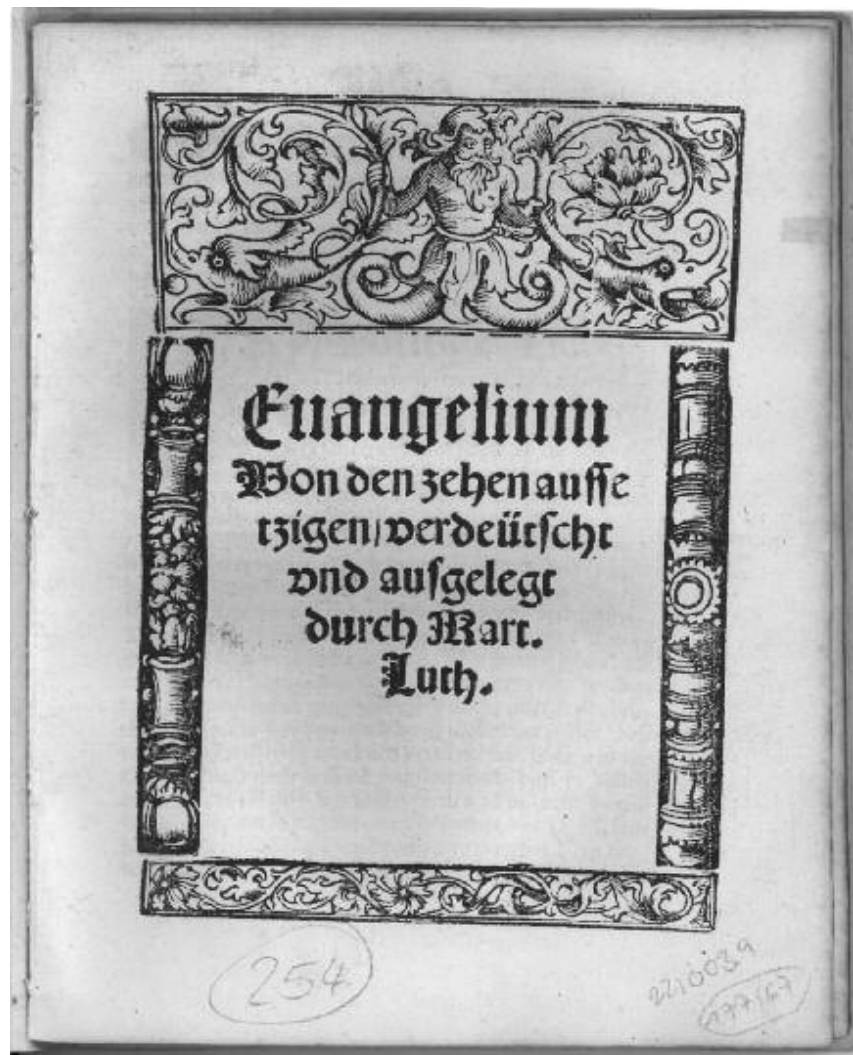 Euangelium
Von den zehen ausse
tzigen/ verdeütscht
vnd ausgelegt
durch Mart.
Luth.
254
2210039
177/67